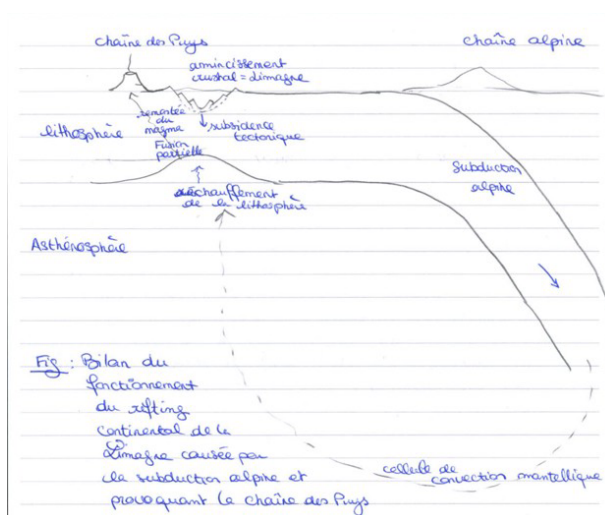 chaîne des Puys
chaîne alpine
amincissement
crustal = Limagne
remontée
du
magma
lithosphère
subsidence
tectonique
Fusion
partielle
Subduction
alpine
réchauffement
de la lithosphère
Asthénosphère
Fig : Bilan du
fonctionnement
du rifting
continental de la
Limagne causée par
la subduction alpine et
provoquant la chaîne des Puys
cellule de
convection mantellique